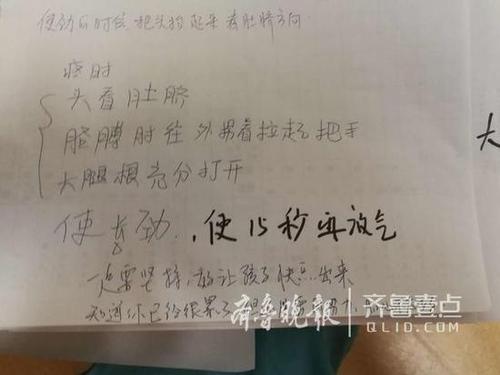 使劲的时候把头抬起来看肚脐方向
疼时
头看肚脐
胳膊肘往外男着拉起把手
大腿根充分打开
使长劲,使15秒再放气
一定要坚持,好让孩子快点出来
知道你已经很累
大
齐鲁晚报 齐鲁壹点
QLID.COM